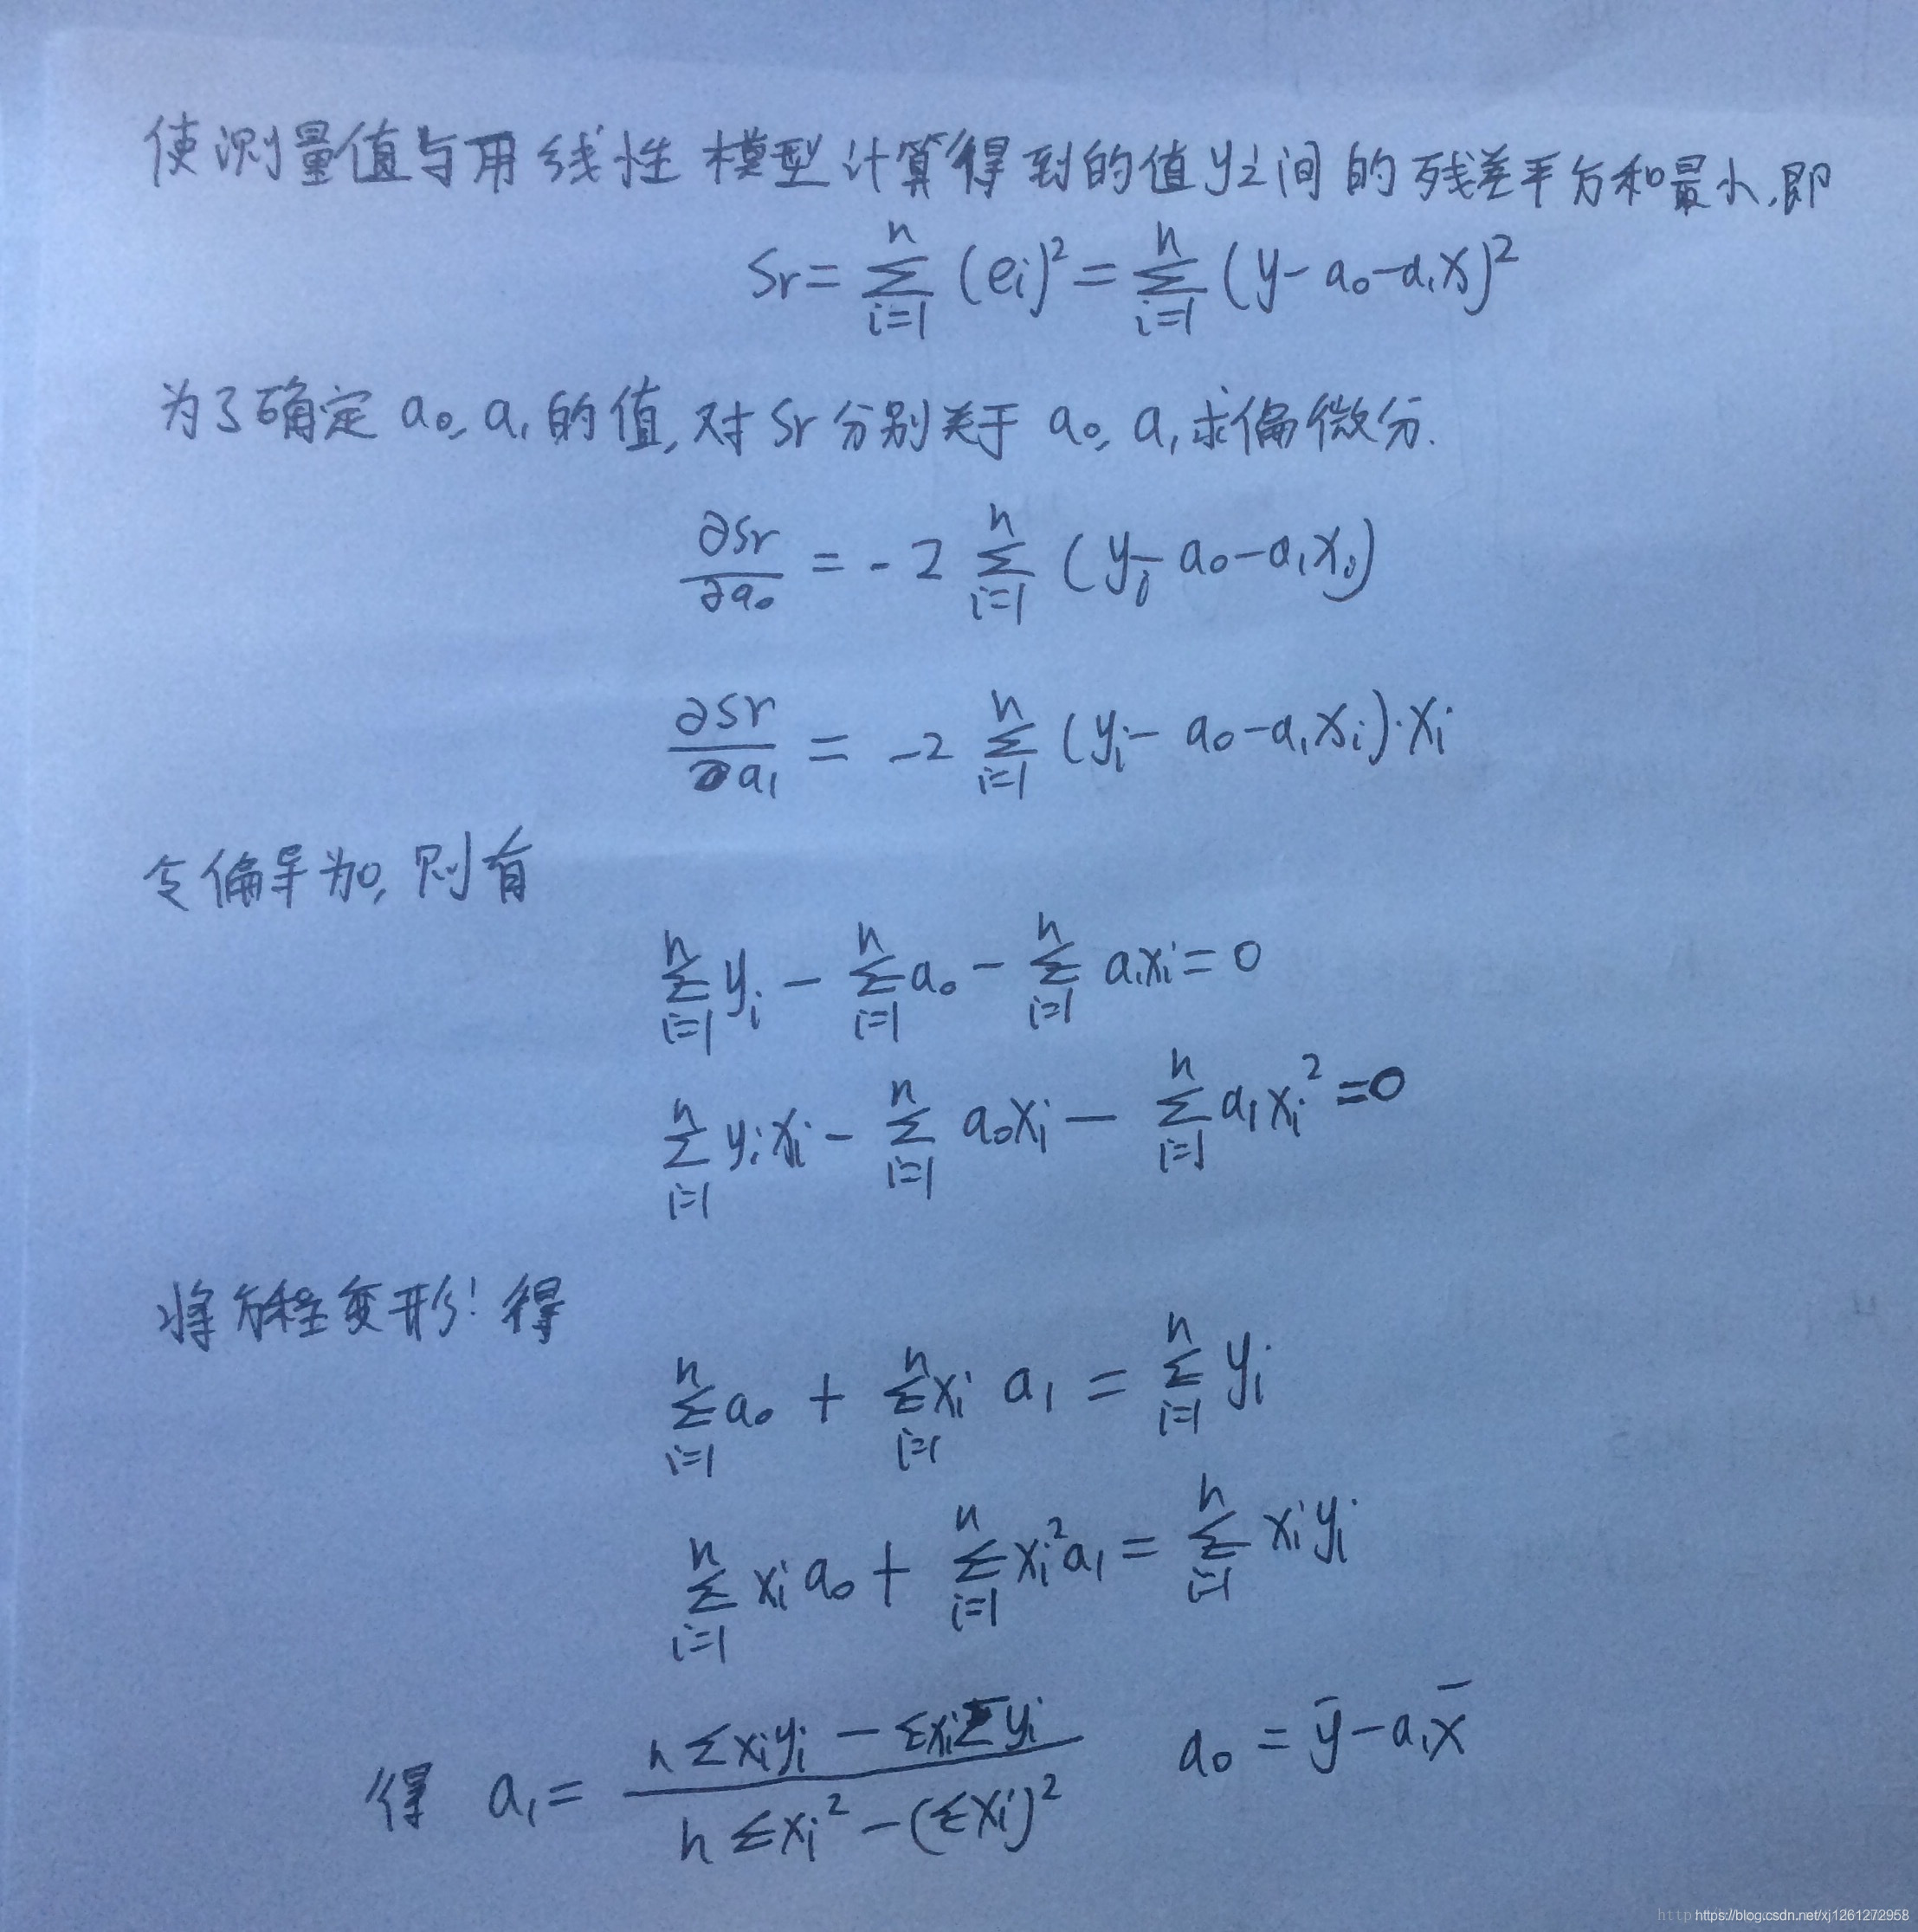 使测量值与用线性模型计算得到的值y之间的残差平方和最小,即
Sr=∑_{i=1}^{n}(ei)²=∑_{i=1}^{n}(y-a₀-a₁x)²
为了确定a₀,a₁的值,对Sr分别关于a₀,a₁求偏微分.
∂Sr/∂a₀=-2∑_{i=1}^{n}(yᵢ-a₀-a₁xᵢ)
∂Sr/∂a₁=-2∑_{i=1}^{n}(yᵢ-a₀-a₁xᵢ)·xᵢ
令偏导为0,则有
∑_{i=1}^{n}yᵢ-∑_{i=1}^{n}a₀-∑_{i=1}^{n}a₁xᵢ=0
∑_{i=1}^{n}yᵢxᵢ-∑_{i=1}^{n}a₀xᵢ-∑_{i=1}^{n}a₁xᵢ²=0
将方程变形:得
∑_{i=1}^{n}a₀+∑_{i=1}^{n}xᵢa₁=∑_{i=1}^{n}yᵢ
∑_{i=1}^{n}xᵢa₀+∑_{i=1}^{n}xᵢ²a₁=∑_{i=1}^{n}xᵢyᵢ
得 a₁=(n∑xᵢyᵢ-∑xᵢ∑yᵢ)/(n∑xᵢ²-(∑xᵢ)²) a₀=ȳ-a₁x̄
https://blog.csdn.net/xj1261272958